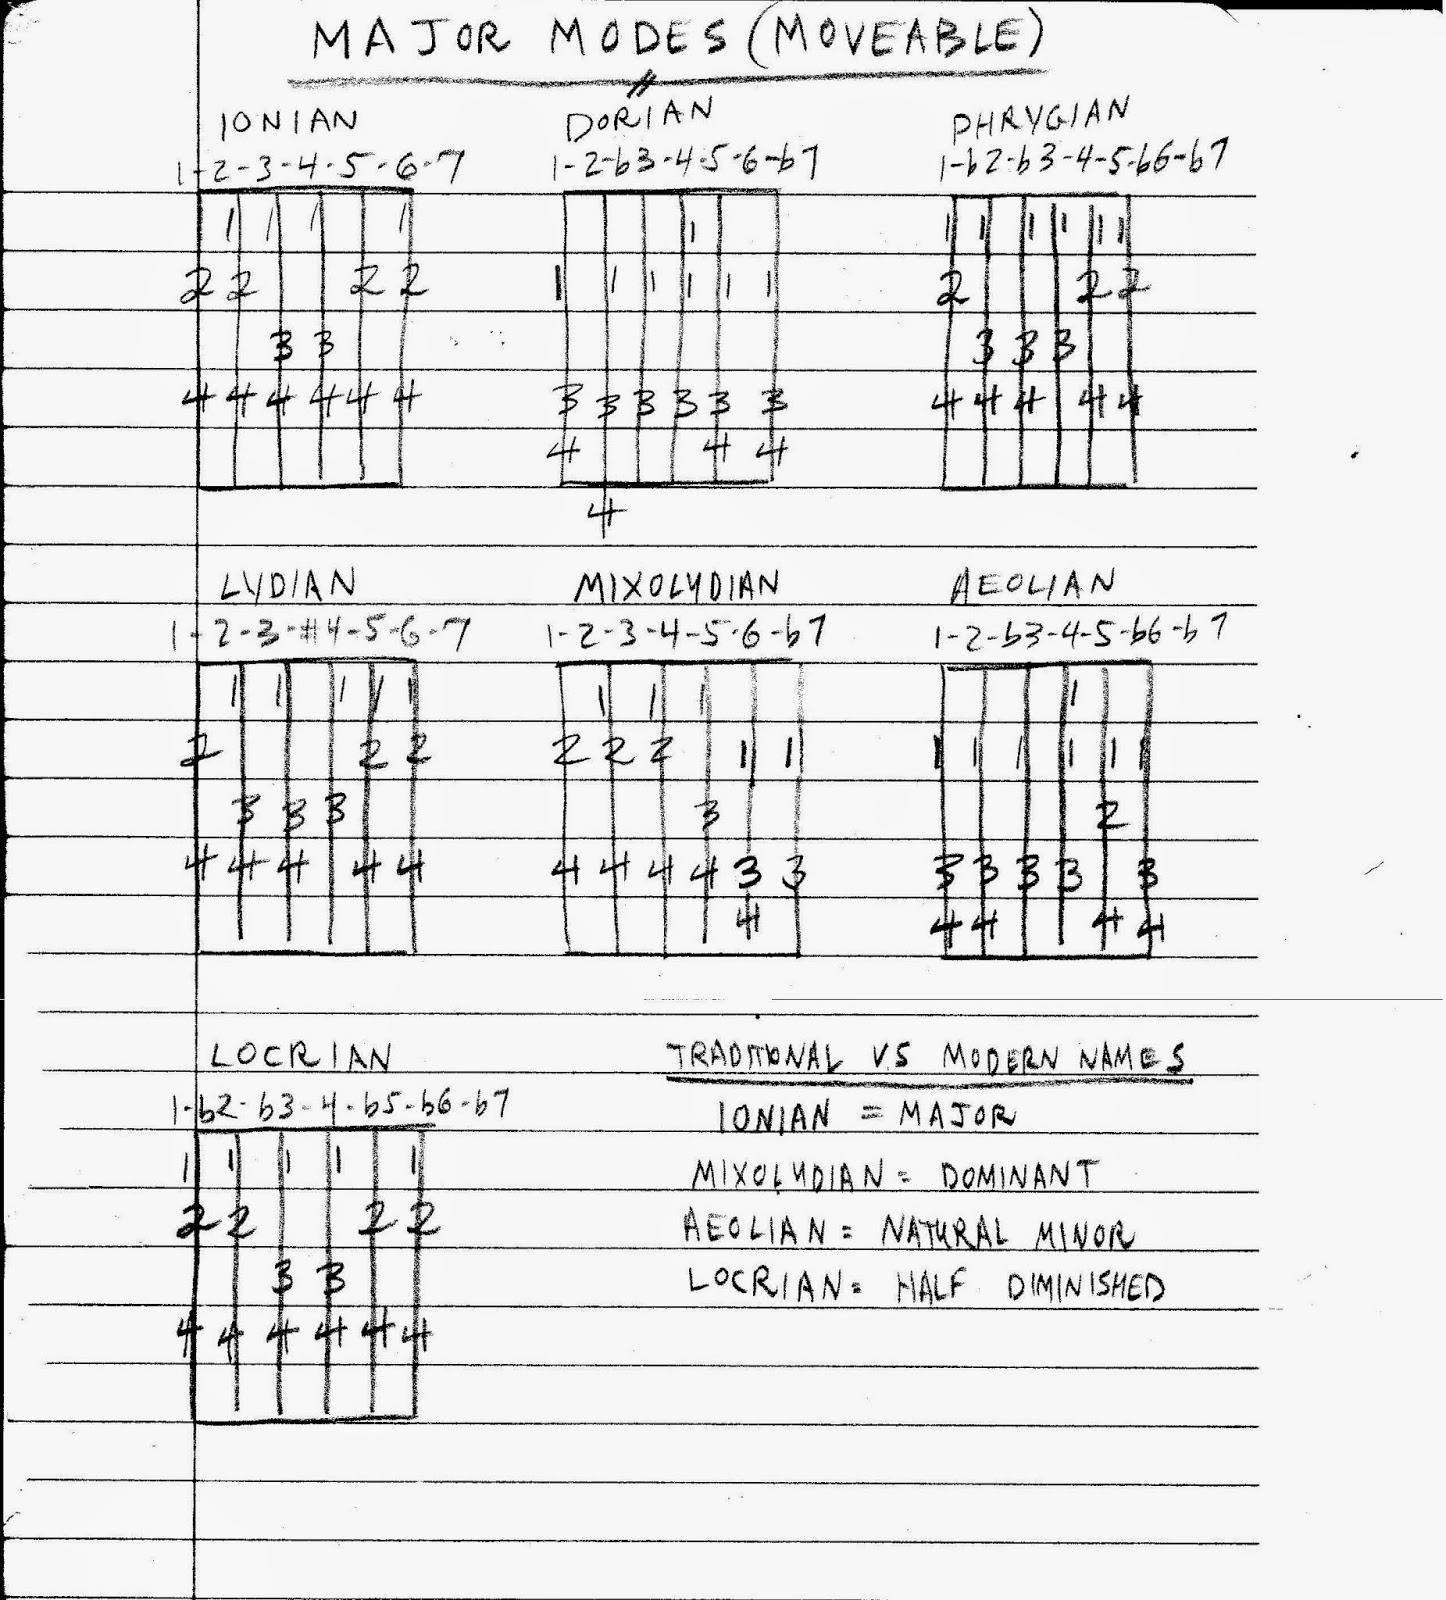 MAJOR MODES (MOVEABLE)
IONIAN
1-2-3-4-5-6-7
1 1 1 1
2 2 2 2
3 3
4 4 4 4 4 4
DORIAN
1-2-b3-4-5-6-b7
1
1 1 1 1 1 1
3 3 3 3 3 3
4 4 4
4
PHRYGIAN
1-b2-b3-4-5-b6-b7
1 1 1 1 1 1
2 2 2
3 3 3
4 4 4 4 4
LYDIAN
1-2-3-#4-5-6-7
1 1 1 1 1
2 2 2
3 3 3
4 4 4 4 4
MIXOLYDIAN
1-2-3-4-5-6-b7
1 1 1
2 2 2 1 1
3
4 4 4 4 3 3
4
AEOLIAN
1-2-b3-4-5-b6-b7
1
1 1 1 1 1 1
2
3 3 3 3 3
4 4 4 4
LOCRIAN
1-b2-b3-4-b5-b6-b7
1 1 1 1 1
2 2 2 2
3 3
4 4 4 4 4 4
TRADITIONAL VS MODERN NAMES
IONIAN = MAJOR
MIXOLYDIAN = DOMINANT
AEOLIAN = NATURAL MINOR
LOCRIAN = HALF DIMINISHED